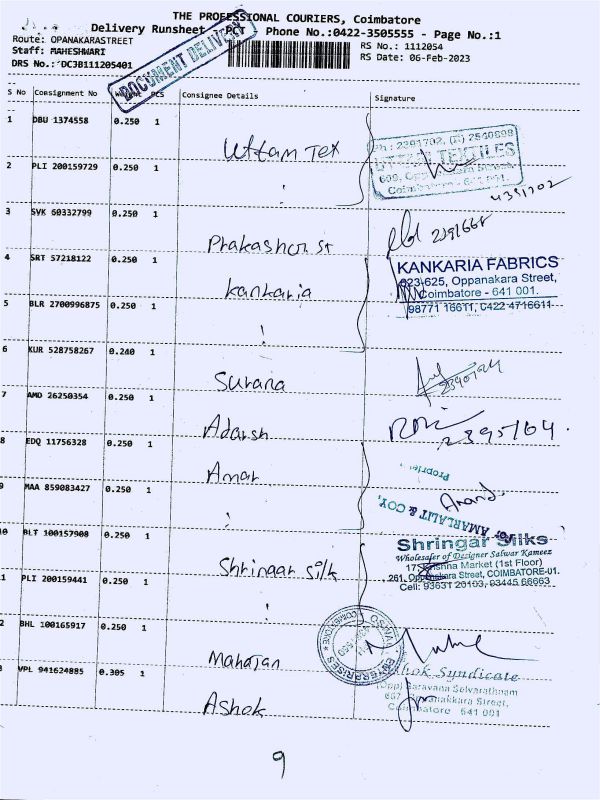 THE PROFESSIONAL COURIERS, Coimbatore
Delivery Runsheet - PCT Phone No.:0422-3505555 - Page No.:1
Route: OPANAKARASTREET
Staff: MAHESHWARI
DRS No.: DC3B111205401
RS No.: 1112054
RS Date: 06-Feb-2023
DOCUMENT DELIVERY
S No Consignment No Weight PCS Consignee Details Signature
1 DBU 1374558 0.250 1 Uttam Tex
Ph : 2391702, (R) 2540698
UTTAM TEXTILES
609, Oppanakara Street,
Coimbatore - 641 001.
2 PLI 200159729 0.250 1
4391702
3 SVK 60332799 0.250 1 Prakashon st
4 SRT 57218122 0.250 1 Kankaria
KANKARIA FABRICS
623-625, Oppanakara Street,
Coimbatore - 641 001.
98771 16611, 0422 4716611
5 BLR 2700996875 0.250 1
6 KUR 528758267 0.240 1 Surana
7 AMD 26250354 0.250 1 Adarsh
2395164.
8 EDQ 11756328 0.250 1 Amar
for AMARLALIT & COY,
Anand.
Proprietor.
9 MAA 859083427 0.250 1
10 BLT 100157908 0.250 1 Shringar Silk
Shringar Silks
Wholesaler of Designer Salwar Kameez
17, Krishna Market (1st Floor)
261, Oppanakara Street, COIMBATORE-01.
Cell: 93631 20103, 93445 66663
11 PLI 200159441 0.250 1
12 BHL 100165917 0.250 1 Mahajan
ENTERPRISES
COIMBATORE
13 VPL 941624885 0.305 1 Ashok
Ashok Syndicate
(Opp) Saravana Selvarathnam
667, Oppanakkara Street,
Coimbatore 641 001
9